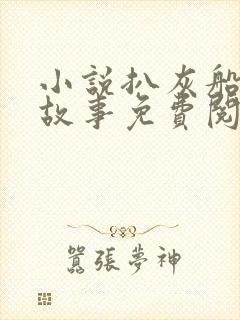 小說扒灰船
故事免費閱
囂張夢神